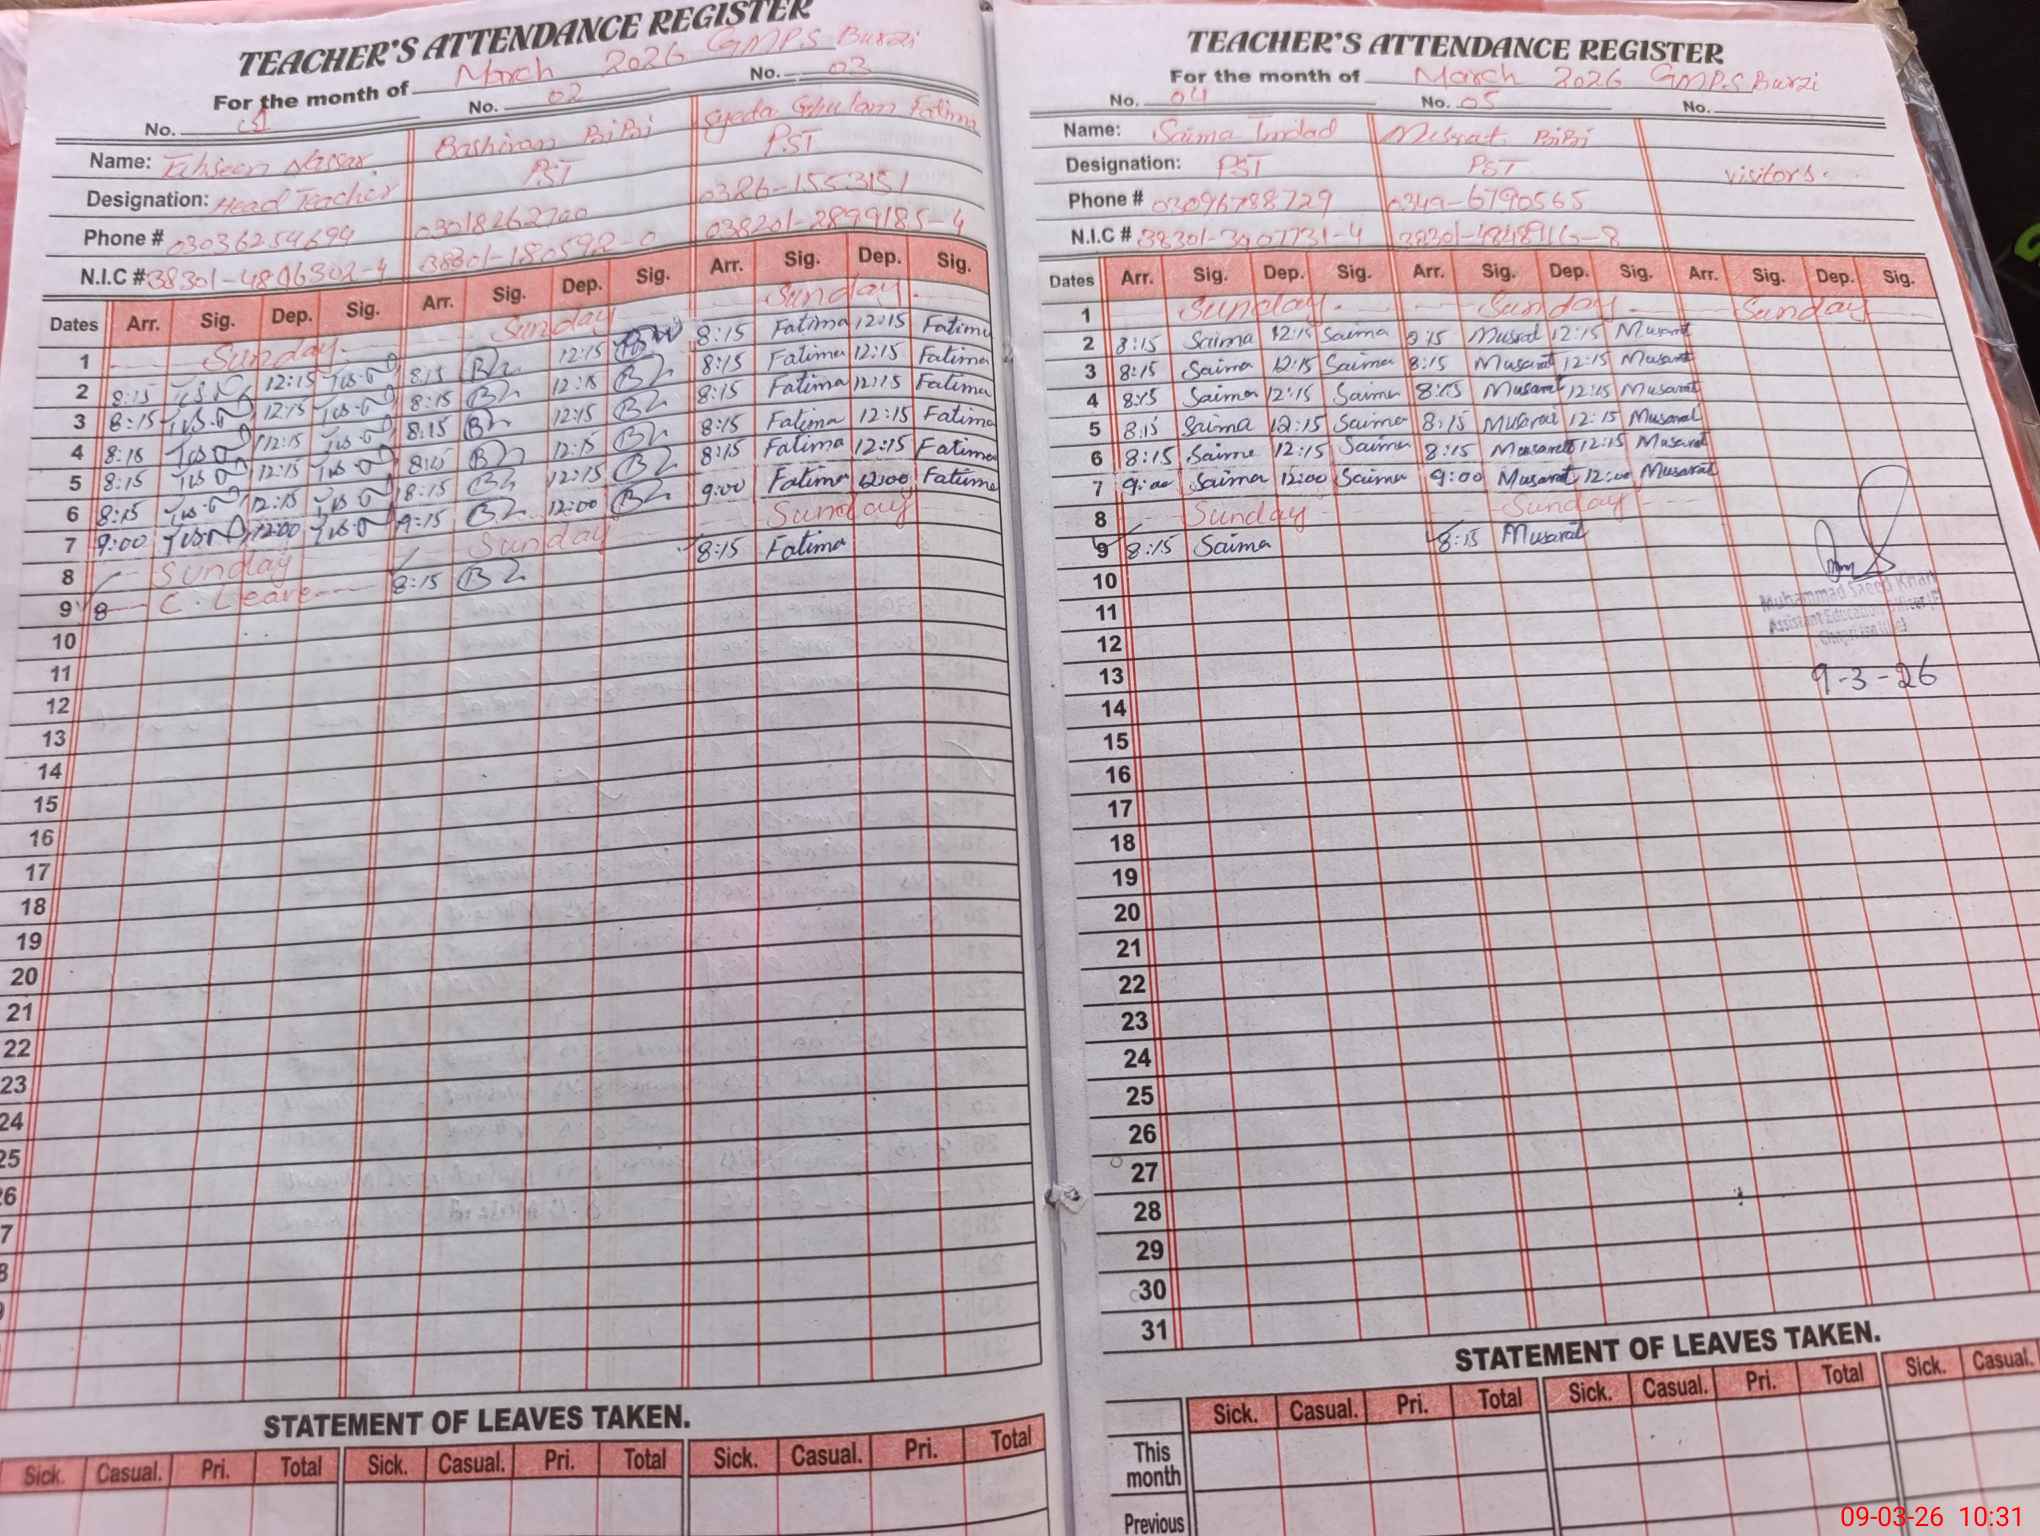 TEACHER'S ATTENDANCE REGISTER
For the month of March 2026 GMPS Burzi
No. 1 No. 02 No. 03
Name: Bashiran BiBi Syeda Ghulam Fatima
Designation: Head Teacher PST PST
Phone # 03036254694
N.I.C #
Dates Arr. Sig. Dep. Sig. Arr. Sig. Dep. Sig. Arr. Sig. Dep. Sig.
1 Sunday. Sunday Sunday.
2 8:15 12:15 8:15 12:15 8:15 Fatima 12:15 Fatima
3 8:15 12:15 8:15 12:15 8:15 Fatima 12:15 Fatima
4 8:15 12:15 8:15 12:15 8:15 Fatima 12:15 Fatima
5 8:15 12:15 8:15 12:15 8:15 Fatima 12:15 Fatima
6 8:15 12:15 8:15 12:15 8:15 Fatima 12:15 Fatima
7 9:00 12:00 9:15 12:00 9:00 Fatima 12:00 Fatima
8 Sunday Sunday Sunday
9 8 C. Leave 8:15 8:15 Fatima
10
11
12
13
14
15
16
17
18
19
20
21
22
23
24
25
26
7
8
STATEMENT OF LEAVES TAKEN.
Sick. Casual. Pri. Total Sick. Casual. Pri. Total Sick. Casual. Pri. Total
TEACHER'S ATTENDANCE REGISTER
For the month of March 2026 GMPS Burzi
No. 04 No. 05 No.
Name: Saima BiBi
Designation: PST PST visitors.
Phone # 03096788729 0349-6790565
N.I.C # 38301-3907731-4
Dates Arr. Sig. Dep. Sig. Arr. Sig. Dep. Sig. Arr. Sig. Dep. Sig.
1 Sunday. Sunday. Sunday
2 8:15 Saima 12:15 Saima Musrat 12:15 Musarat
3 8:15 Saima 12:15 Saima 8:15 Musarat 12:15 Musarat
4 8:15 Saima 12:15 Saima 8:15 Musarat 12:15 Musarat
5 8:15 Saima 12:15 Saima 8:15 Musarat 12:15 Musarat
6 8:15 Saima 12:15 Saima 8:15 Musarat 12:15 Musarat
7 9:00 Saima 12:00 Saima 9:00 Musarat 12:00 Musarat
8 Sunday Sunday
9 8:15 Saima 8:15 Musarat
10
11
12
13
14
15
16
17
18
19
20
21
22
23
24
25
26
27
28
29
30
31
Muhammad Saeed Khan
Assistant Education Officer
9-3-26
STATEMENT OF LEAVES TAKEN.
Sick. Casual. Pri. Total Sick. Casual. Pri. Total Sick. Casual.
This month
Previous
09-03-26 10:31